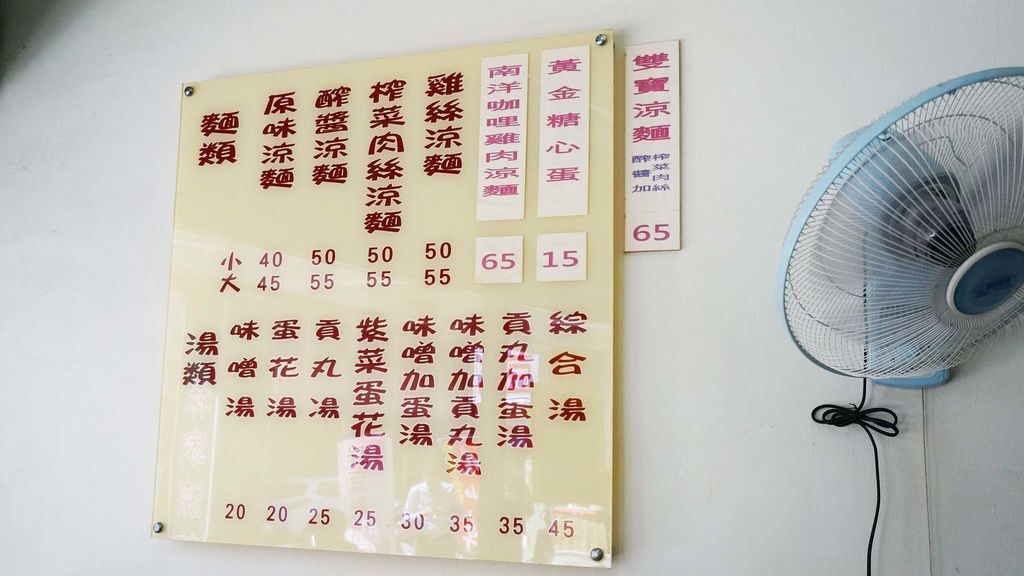 麵類
小
大
原味涼麵
40
45
醡醬涼麵
50
55
榨菜肉絲涼麵
50
55
雞絲涼麵
50
55
南洋咖哩雞肉涼麵
65
黃金糖心蛋
15
雙寶涼麵
榨菜肉絲
醡醬加
65
湯類
味噌湯
20
蛋花湯
20
貢丸湯
25
紫菜蛋花湯
25
味噌加蛋湯
30
味噌加貢丸湯
35
貢丸加蛋湯
35
綜合湯
45